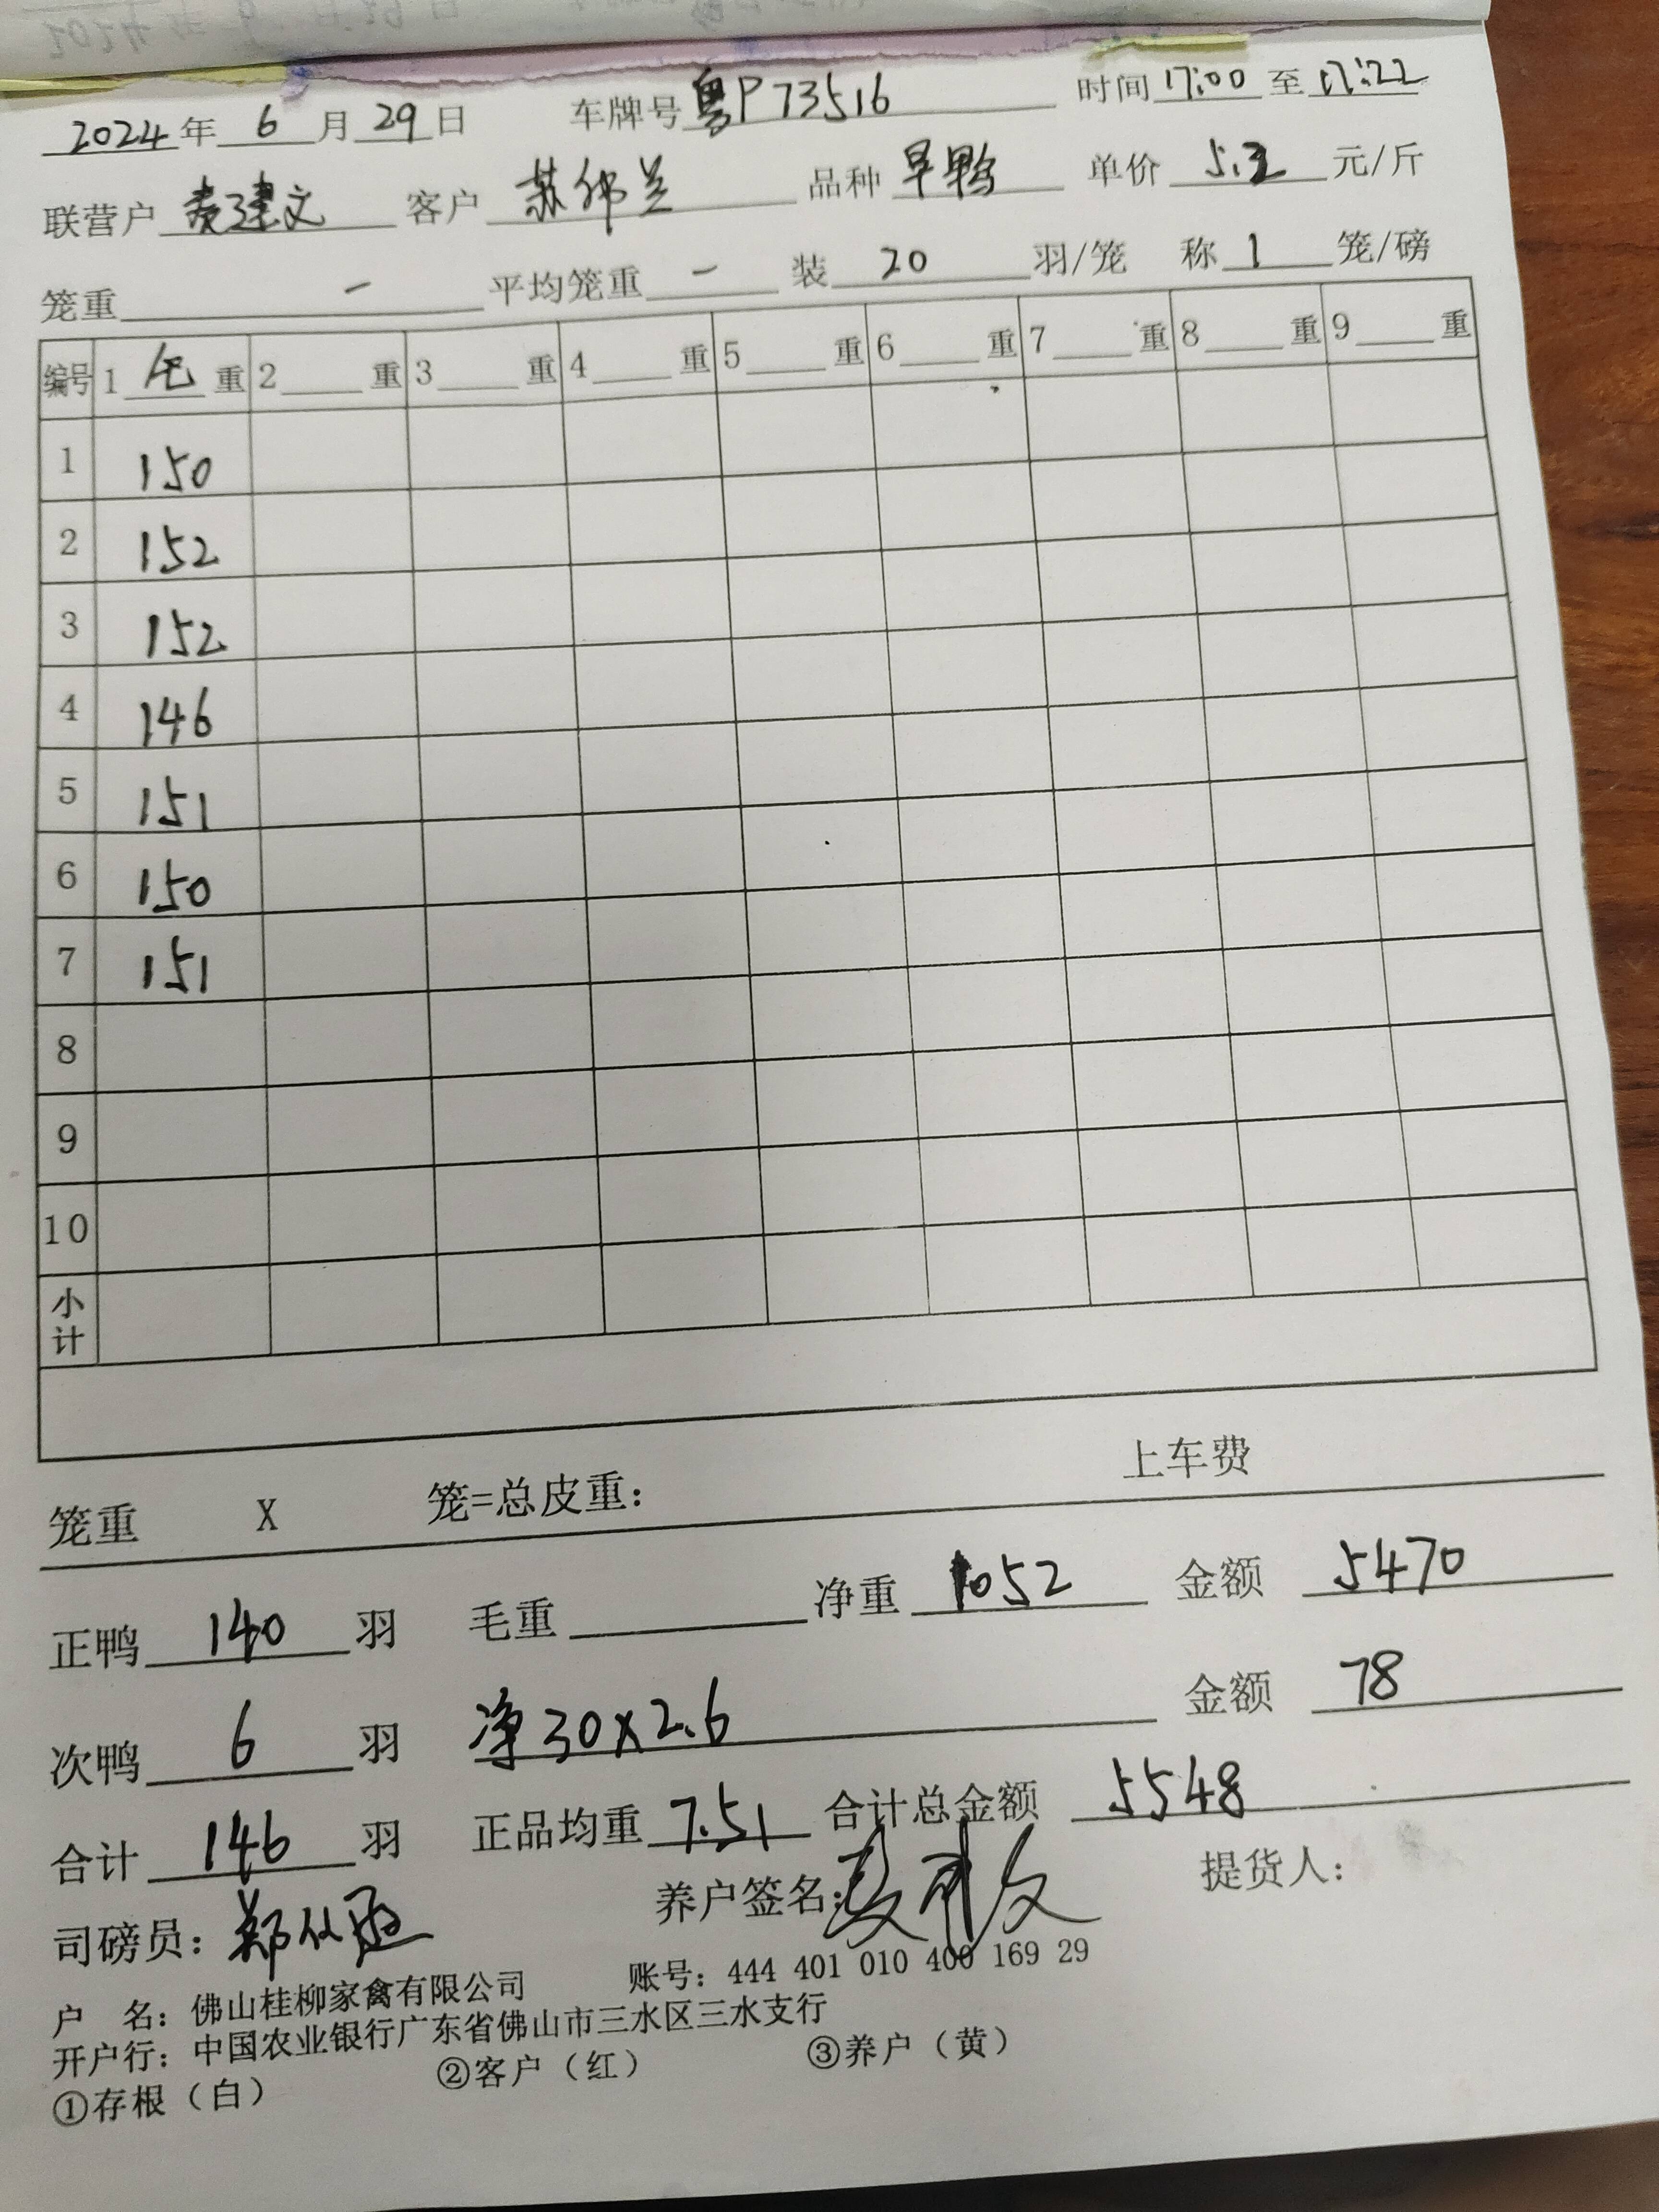 2024年 6 月 29 日 车牌号 粤P73516 时间 17:00 至 17:22
联营户 麦建文 客户 苏伟兰 品种 旱鸭 单价 5.2 元/斤
笼重 — 平均笼重 — 装 20 羽/笼 称 1 笼/磅
编号 1 毛 重 2 重 3 重 4 重 5 重 6 重 7 重 8 重 9 重
1 150
2 152
3 152
4 146
5 151
6 150
7 151
8
9
10
小计
笼重 X 笼=总皮重： 上车费
正鸭 140 羽 毛重 净重 1052 金额 5470
次鸭 6 羽 净30x2.6 金额 78
合计 146 羽 正品均重 7.51 合计总金额 5548
司磅员： 养户签名： 提货人：
户 名：佛山桂柳家禽有限公司 账号：444 401 010 400 169 29
开户行：中国农业银行广东省佛山市三水区三水支行
①存根（白） ②客户（红） ③养户（黄）